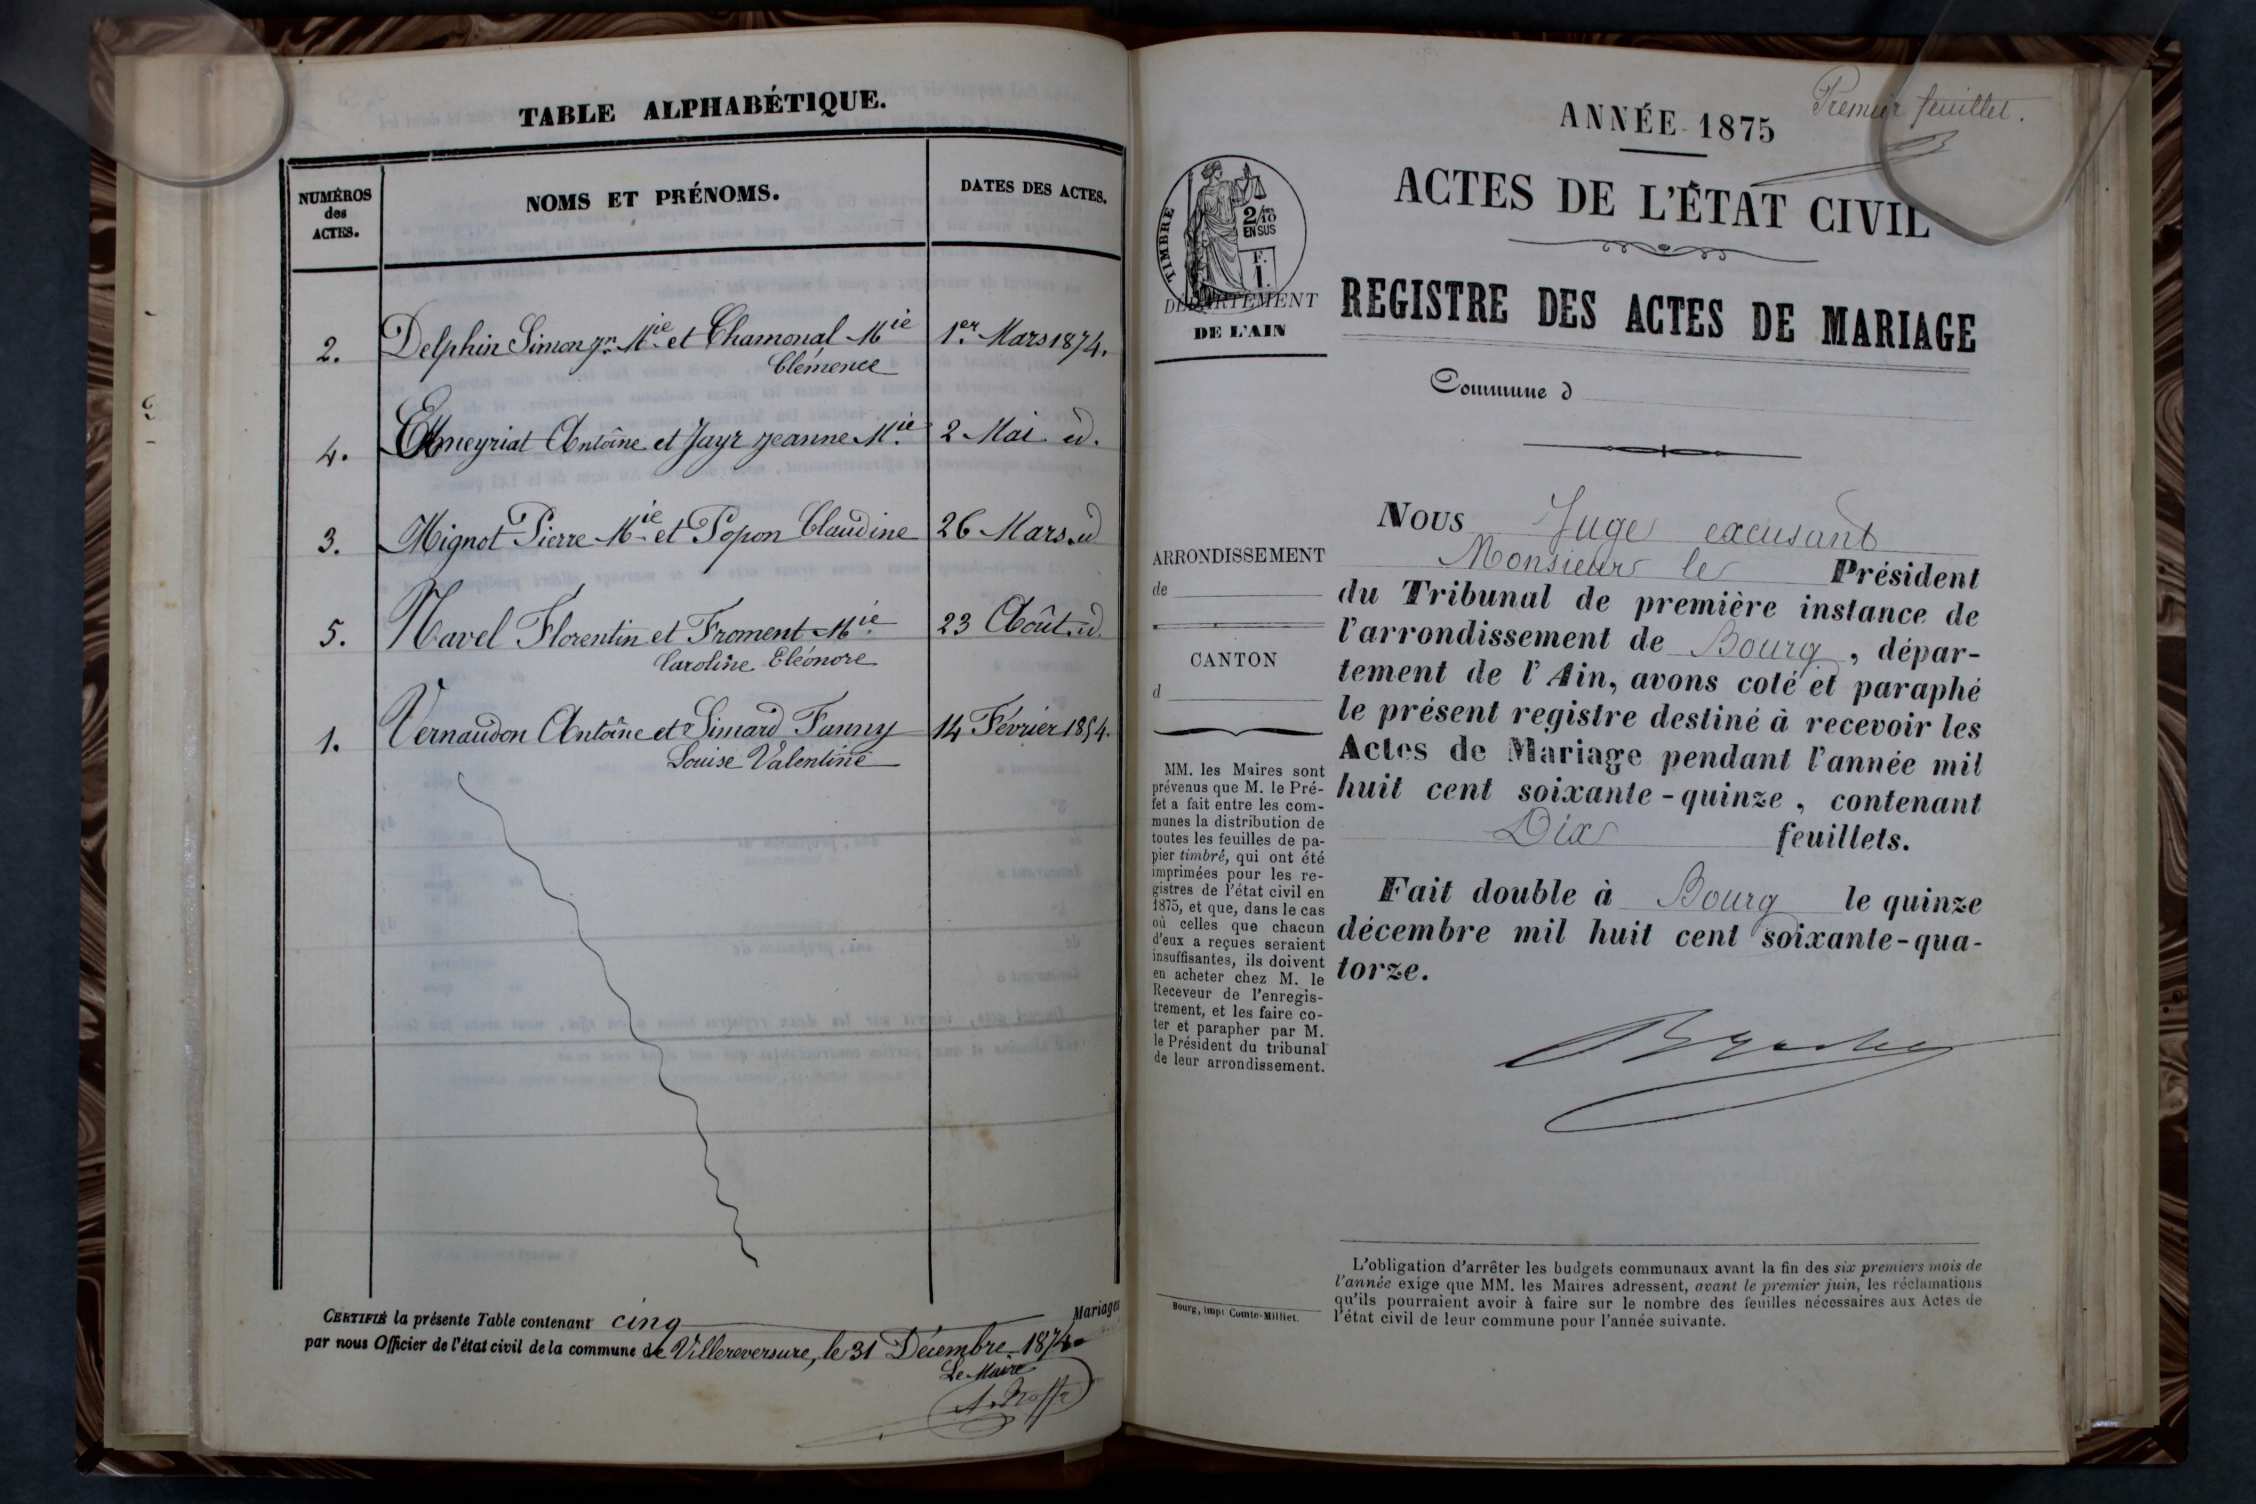 TABLE ALPHABÉTIQUE.
NUMÉROS
des
ACTES.
NOMS ET PRÉNOMS.
DATES DES ACTES.
2. Delphin Simon Jn. Mie et Chamonal Mie 1er Mars 1874.
Clémence
4. Emeyriat Antoine et Jayr Jeanne Mie 2 Mai id.
3. Mignot Pierre Mie et Popon Claudine 26 Mars id
5. Navel Florentin et Froment Mie 23 Août id.
Caroline Eléonore
1. Vernaudon Antoine et Simard Fanny 14 Février 1854.
Louise Valentine
CERTIFIÉ la présente Table contenant cinq Mariages
par nous Officier de l'état civil de la commune de Villereversure, le 31 Décembre 1874
Le Maire
Premier feuillet.
ANNÉE 1875
ACTES DE L'ÉTAT CIVIL
REGISTRE DES ACTES DE MARIAGE
TIMBRE
2/10es
EN SUS
F.
1.
DÉPARTEMENT
DE L'AIN
Commune d
ARRONDISSEMENT
de
CANTON
d
MM. les Maires sont
prévenus que M. le Pré-
fet a fait entre les com-
munes la distribution de
toutes les feuilles de pa-
pier timbré, qui ont été
imprimées pour les re-
gistres de l'état civil en
1875, et que, dans le cas
où celles que chacun
d'eux a reçues seraient
insuffisantes, ils doivent
en acheter chez M. le
Receveur de l'enregis-
trement, et les faire co-
ter et parapher par M.
le Président du tribunal
de leur arrondissement.
Bourg, impr Comte-Milliet.
NOUS Juge excusant
Monsieur le Président
du Tribunal de première instance de
l'arrondissement de Bourg, dépar-
tement de l'Ain, avons coté et paraphé
le présent registre destiné à recevoir les
Actes de Mariage pendant l'année mil
huit cent soixante-quinze, contenant
Dix feuillets.
Fait double à Bourg le quinze
décembre mil huit cent soixante-qua-
torze.
L'obligation d'arrêter les budgets communaux avant la fin des six premiers mois de
l'année exige que MM. les Maires adressent, avant le premier juin, les réclamations
qu'ils pourraient avoir à faire sur le nombre des feuilles nécessaires aux Actes de
l'état civil de leur commune pour l'année suivante.